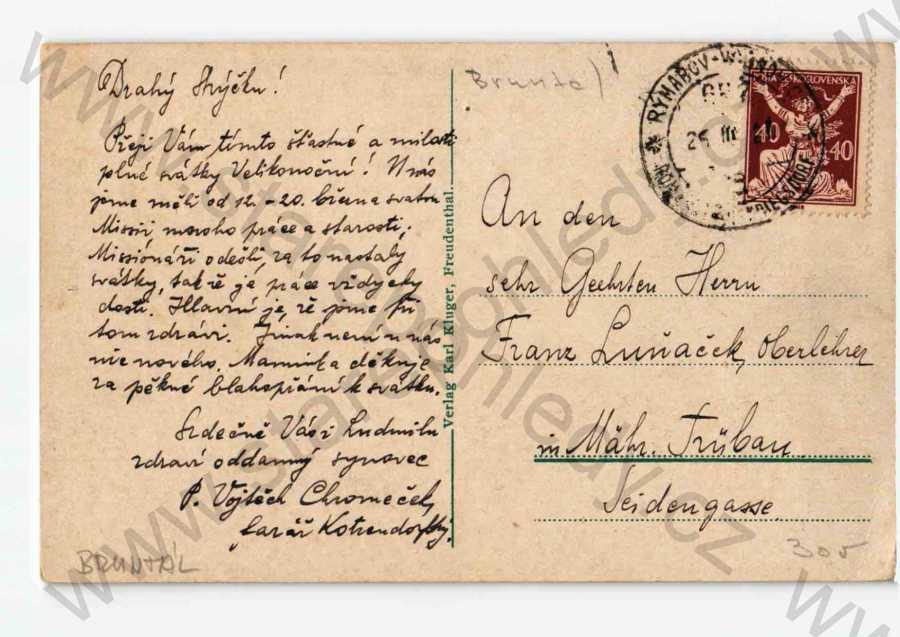 Drahý Strýčku!
Přeji Vám tímto šťastné a milosti
plné svátky Velikonoční! U nás
jsme měli od 12.–20. března svatou
Missii mnoho práce a starostí,
Missionáři odešli, za to nastaly
svátky, takže je práce vždycky
dosti. Hlavní je, že jsme při
tom zdrávi. Jinak není u nás
nic nového. Maminka děkuje
za pěkné blahopřání k svátku.
Srdečně Vás i Ludmilu
zdraví oddanný synovec
P. Vojtěch Chromeček,
farář Kotzendorfský.
BRUNTÁL
Verlag Karl Kluger, Freudenthal.
Bruntál
RÝMAŘOV
26 III
ČESKOSLOVENSKÁ
40 40
An den
sehr Geehrten Herrn
Franz Luňáček, Oberlehrer
in Mähr. Trübau
Seidengasse
305
www.starepohledy.cz